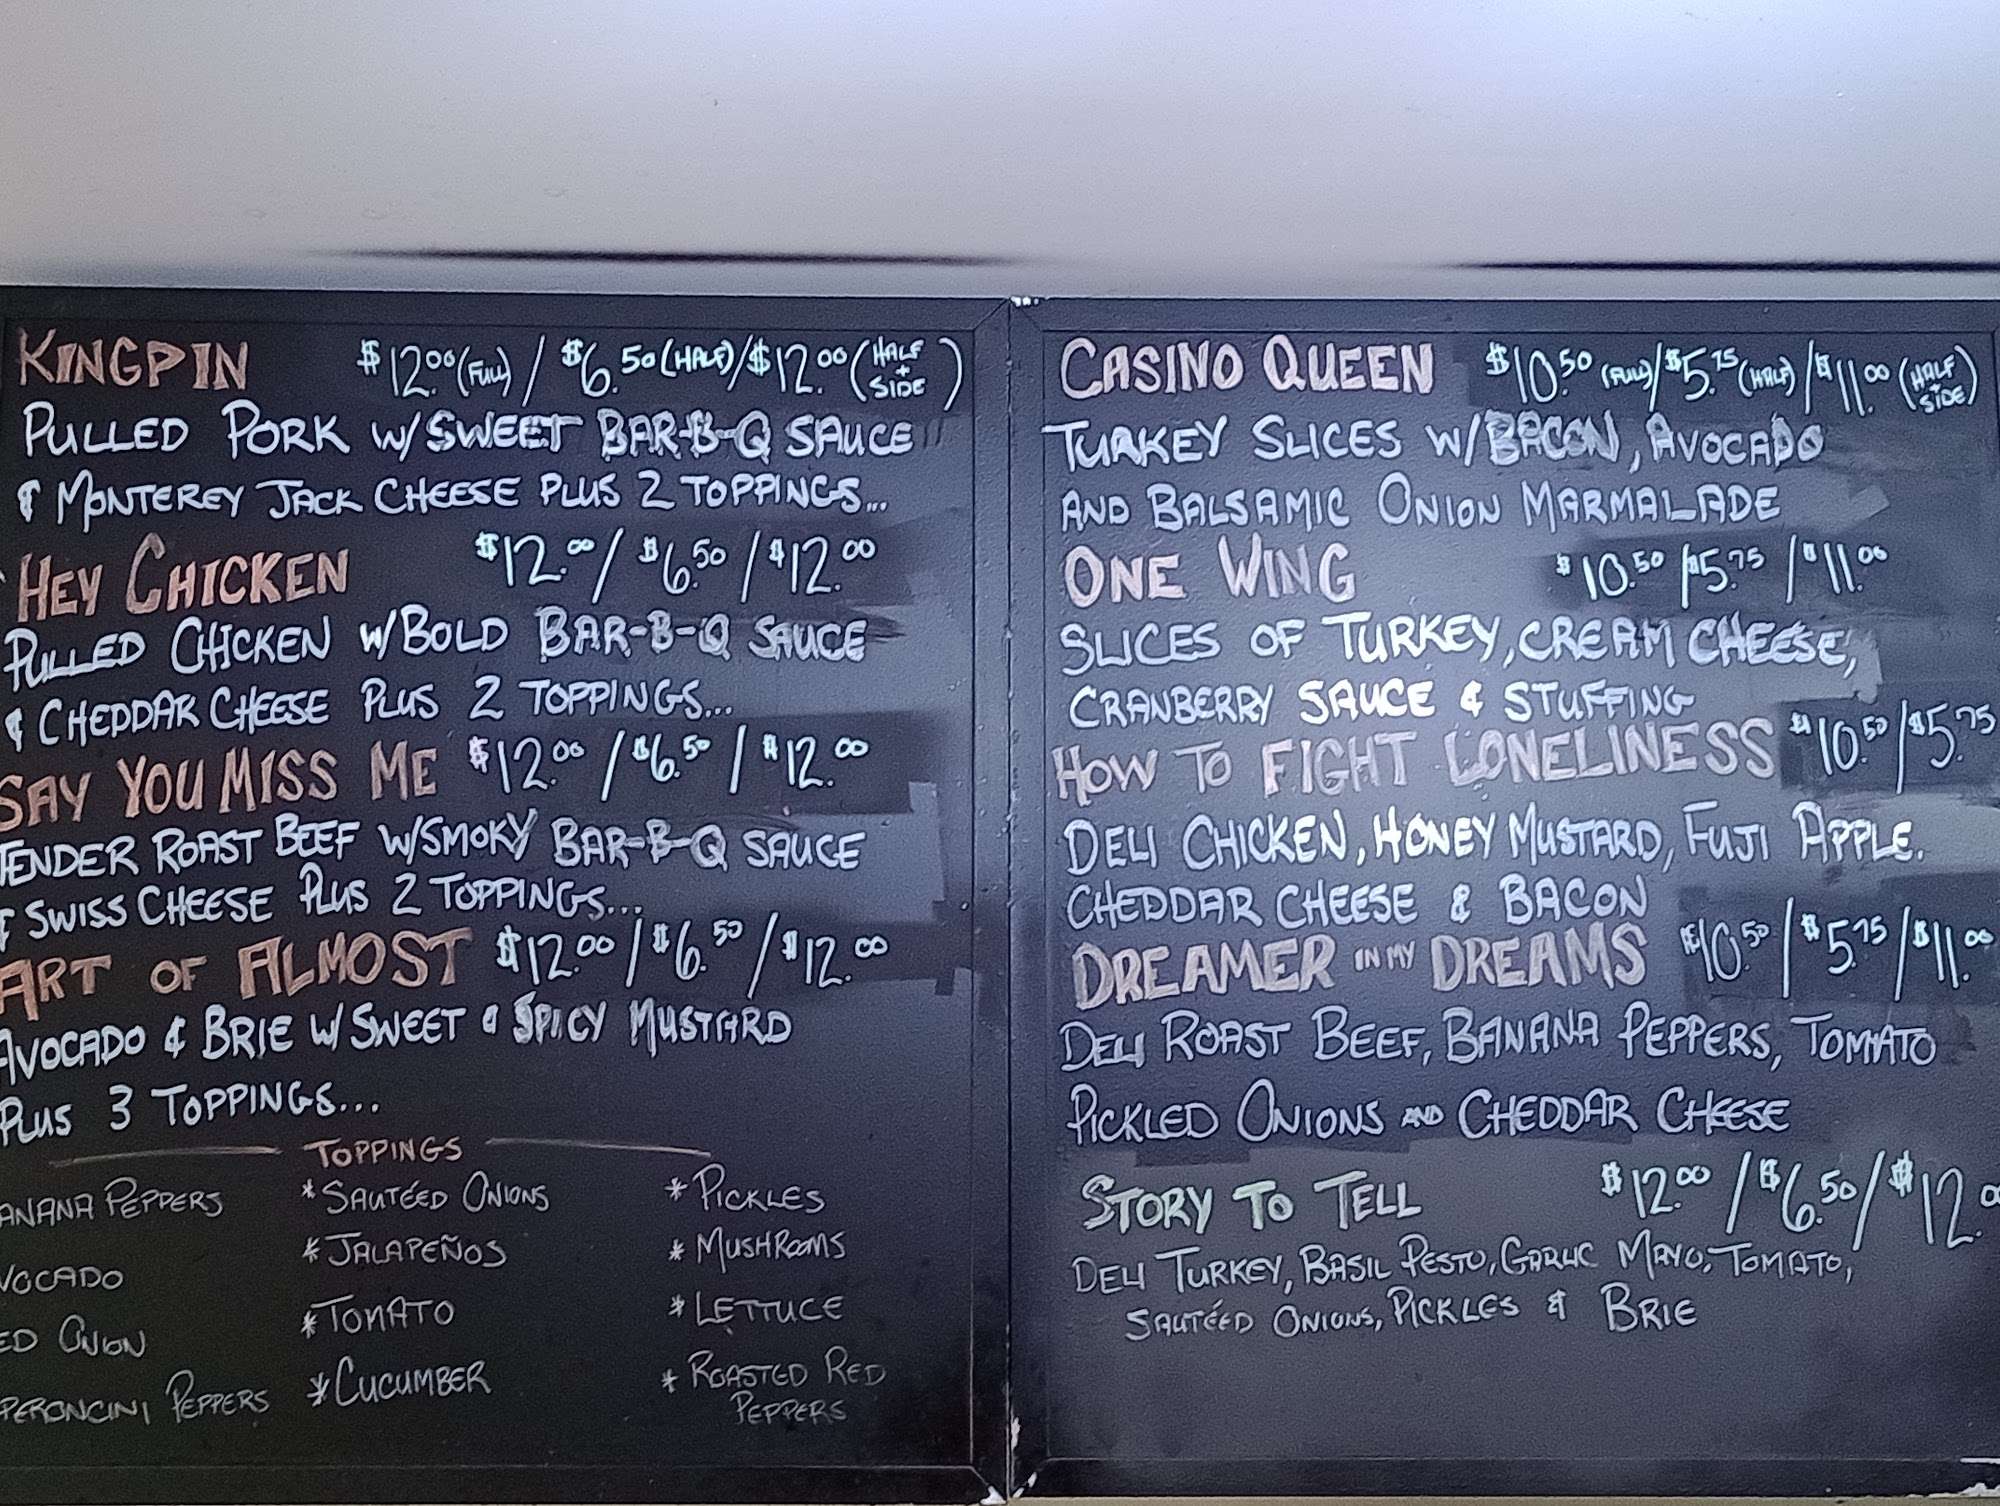 KINGPIN $12.00 (FULL) / $6.50 (HALF) / $12.00 (HALF + SIDE)
PULLED PORK W/ SWEET BAR-B-Q SAUCE
& MONTEREY JACK CHEESE PLUS 2 TOPPINGS...
HEY CHICKEN $12.00 / $6.50 / $12.00
PULLED CHICKEN W/ BOLD BAR-B-Q SAUCE
& CHEDDAR CHEESE PLUS 2 TOPPINGS...
SAY YOU MISS ME $12.00 / $6.50 / $12.00
TENDER ROAST BEEF W/ SMOKY BAR-B-Q SAUCE
& SWISS CHEESE PLUS 2 TOPPINGS...
ART OF ALMOST $12.00 / $6.50 / $12.00
AVOCADO & BRIE W/ SWEET & SPICY MUSTARD
PLUS 3 TOPPINGS...
TOPPINGS
ANANA PEPPERS * SAUTÉED ONIONS * PICKLES
VOCADO * JALAPEÑOS * MUSHROOMS
ED ONION * TOMATO * LETTUCE
PERONCINI PEPPERS * CUCUMBER * ROASTED RED
PEPPERS
CASINO QUEEN $10.50 (FULL) / $5.75 (HALF) / $11.00 (HALF + SIDE)
TURKEY SLICES W/ BACON, AVOCADO
AND BALSAMIC ONION MARMALADE
ONE WING $10.50 / $5.75 / $11.00
SLICES OF TURKEY, CREAM CHEESE,
CRANBERRY SAUCE & STUFFING
HOW TO FIGHT LONELINESS $10.50 / $5.75
DELI CHICKEN, HONEY MUSTARD, FUJI APPLE.
CHEDDAR CHEESE & BACON
DREAMER IN MY DREAMS $10.50 / $5.75 / $11.00
DELI ROAST BEEF, BANANA PEPPERS, TOMATO
PICKLED ONIONS AND CHEDDAR CHEESE
STORY TO TELL $12.00 / $6.50 / $12.00
DELI TURKEY, BASIL PESTO, GARLIC MAYO, TOMATO,
SAUTÉED ONIONS, PICKLES & BRIE